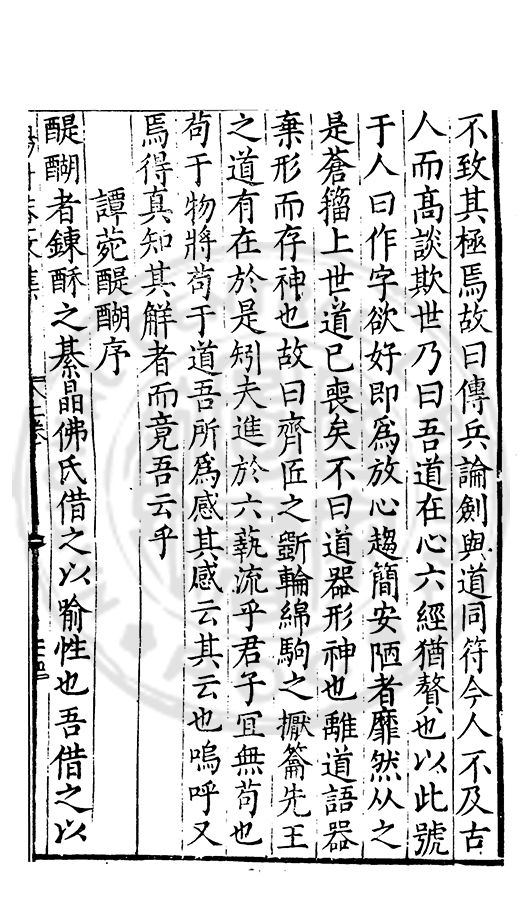 不致其極焉故曰傳兵論劍與道同符今人不及古
人而高談欺世乃曰吾道在心六經猶贅也以此號
于人曰作字欲好即為放心趨簡安陋者靡然从之
是蒼籀上世道已喪矣不曰道器形神也離道語器
棄形而存神也故曰齊匠之斵輪綿駒之擫籥先王
之道有在於是矧夫進於六藝流乎君子冝無苟也
苟于物將苟于道吾所為感其感云其云也嗚呼又
焉得真知其解者而竟吾云乎
譚菀醍醐序
醍醐者鍊酥之綦晶佛氏借之以喻性也吾借之以